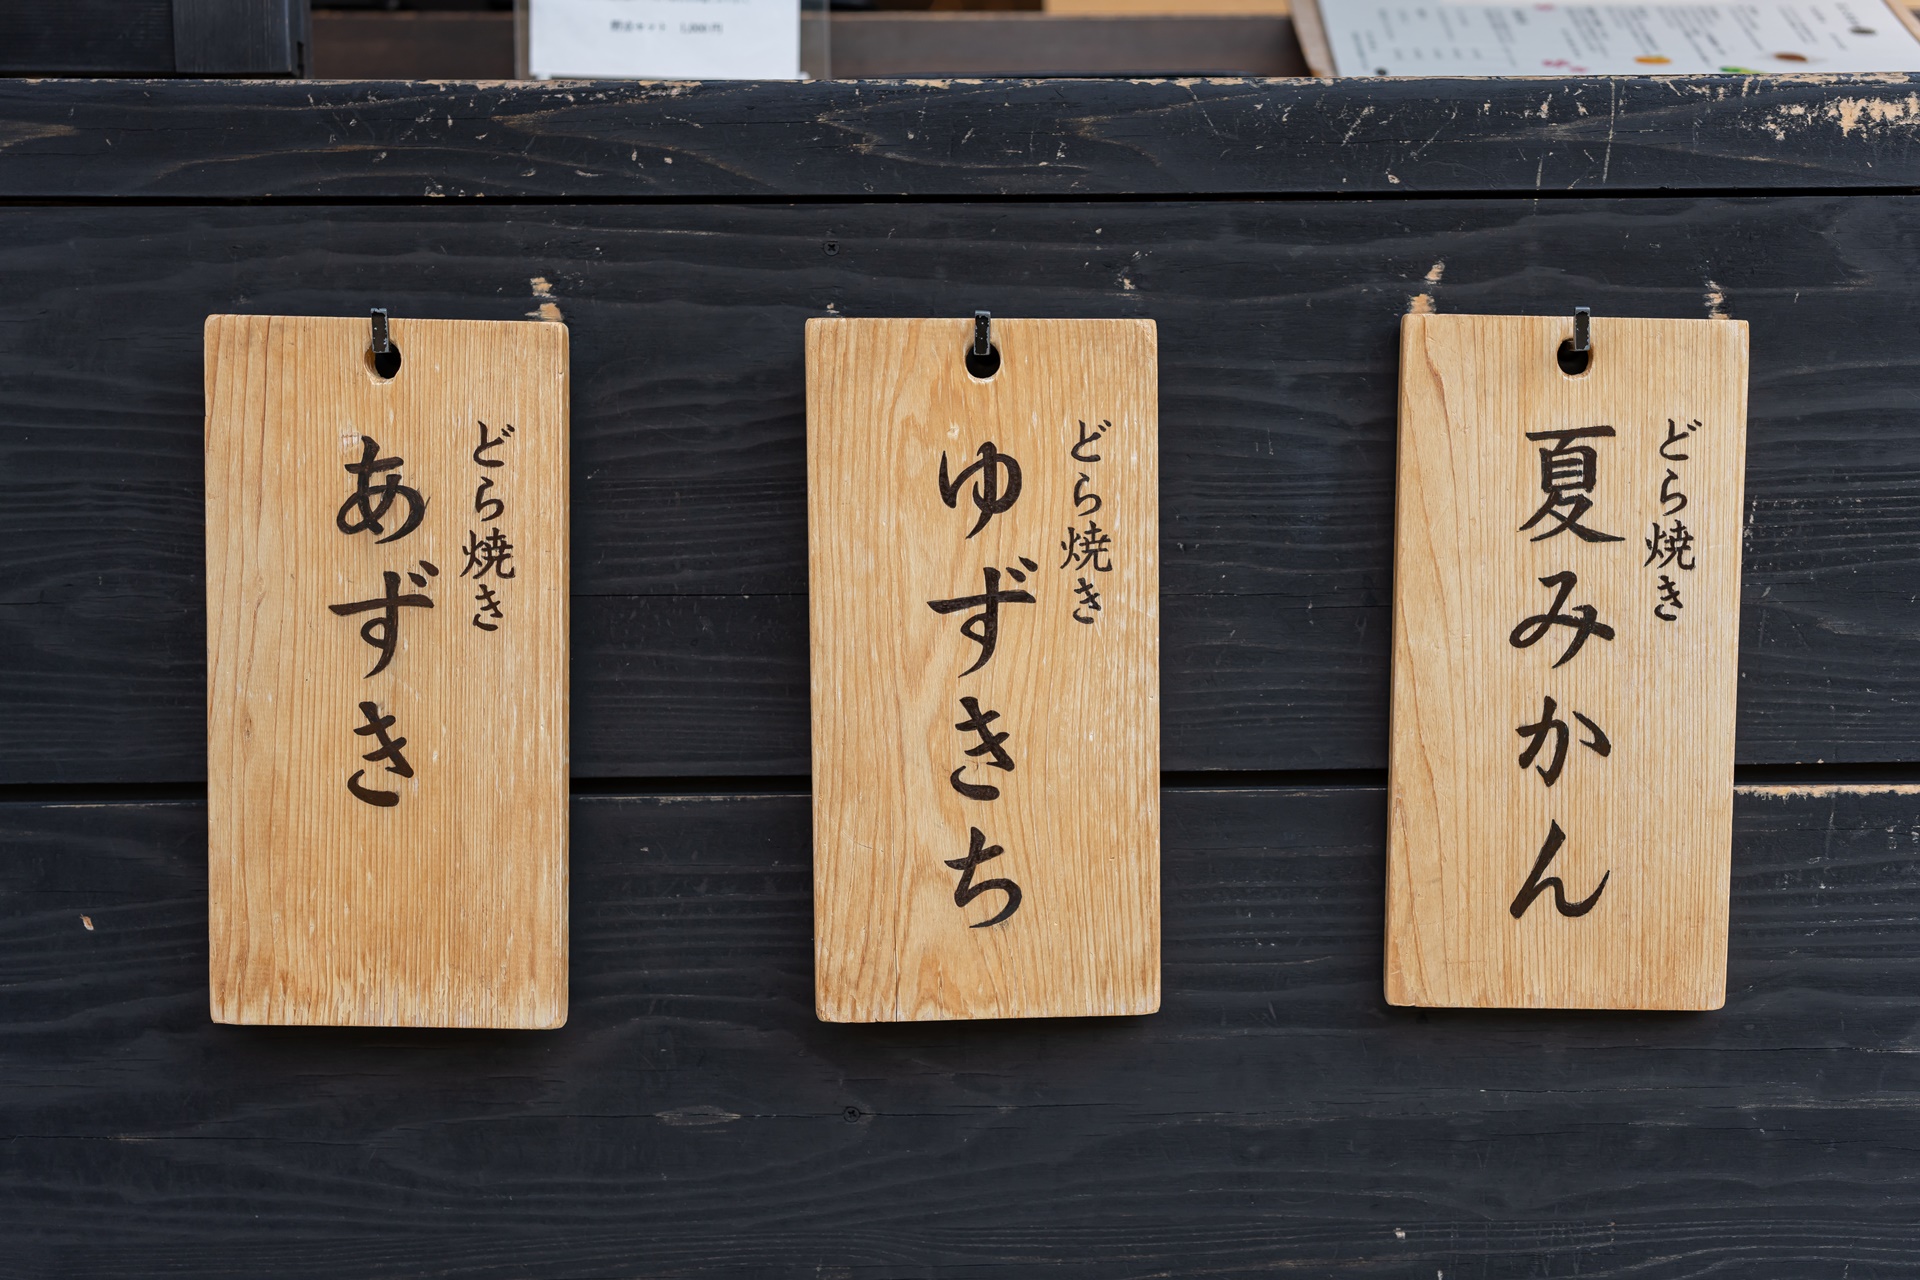 どら焼き
あずき
どら焼き
ゆずきち
どら焼き
夏みかん